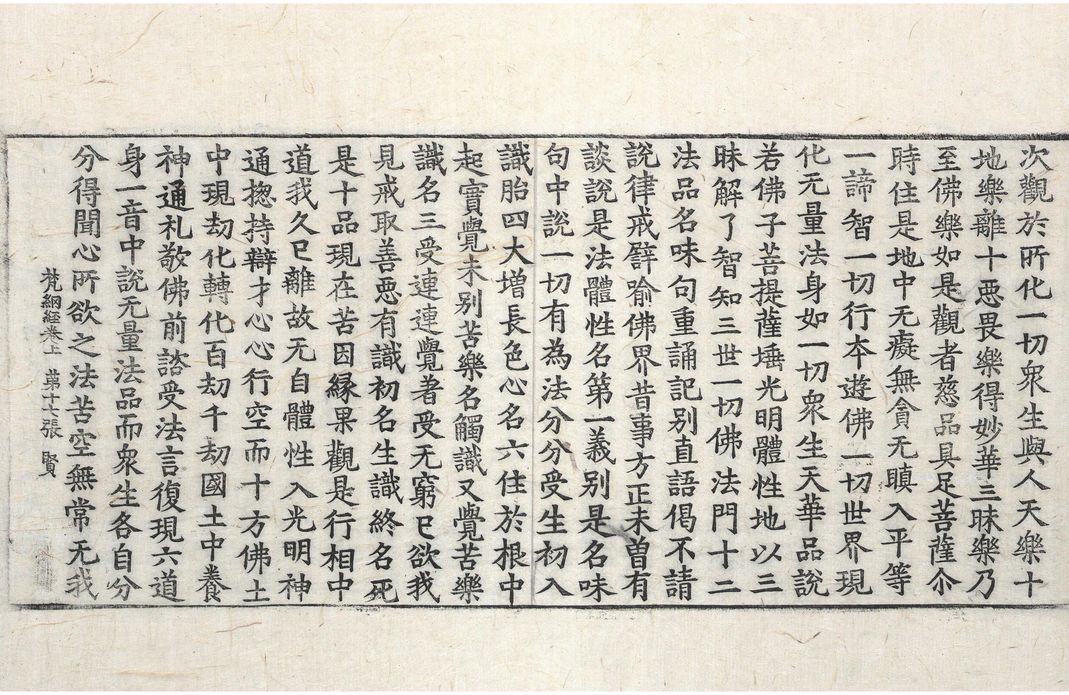 次觀於所化一切衆生與人天樂十
地樂離十惡畏樂得妙華三昧樂乃
至佛樂如是觀者慈品具足菩薩尒
時住是地中无癡無貪无瞋入平等
一諦智一切行夲遊佛一切世界現
化无量法身如一切衆生天華品說
若佛子菩提薩埵光明體性地以三
昧解了智知三世一切佛法門十二
法品名味句重誦記別直語偈不請
說律戒譬喻佛界昔事方正未曽有
談說是法體性名第一義別是名味
句中說一切有為法分分受生初入
識胎四大增長色心名六住於根中
起實覺未別苦樂名觸識又覺苦樂
識名三受連連覺著受无窮已欲我
見戒取善惡有識初名生識終名死
是十品現在苦因縁果觀是行相中
道我久已離故无自體性入光明神
通揔持辯才心心行空而十方佛土
中現刧化轉化百刧千刧國土中養
神通礼敬佛前諮受法言復現六道
身一音中說无量法品而衆生各自分
分得聞心所欲之法苦空無常无我
梵網経巻上 苐十七張 賢